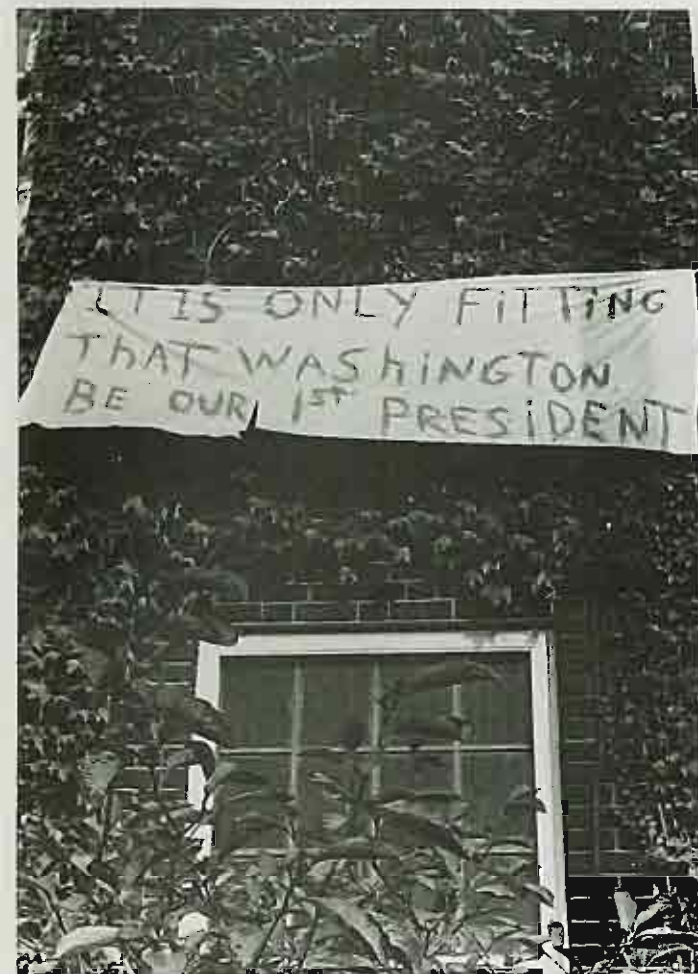 IT IS ONLY FiTTiNG
ThAT WAShiNGTON
BE OUR 1ST PRESiDENT